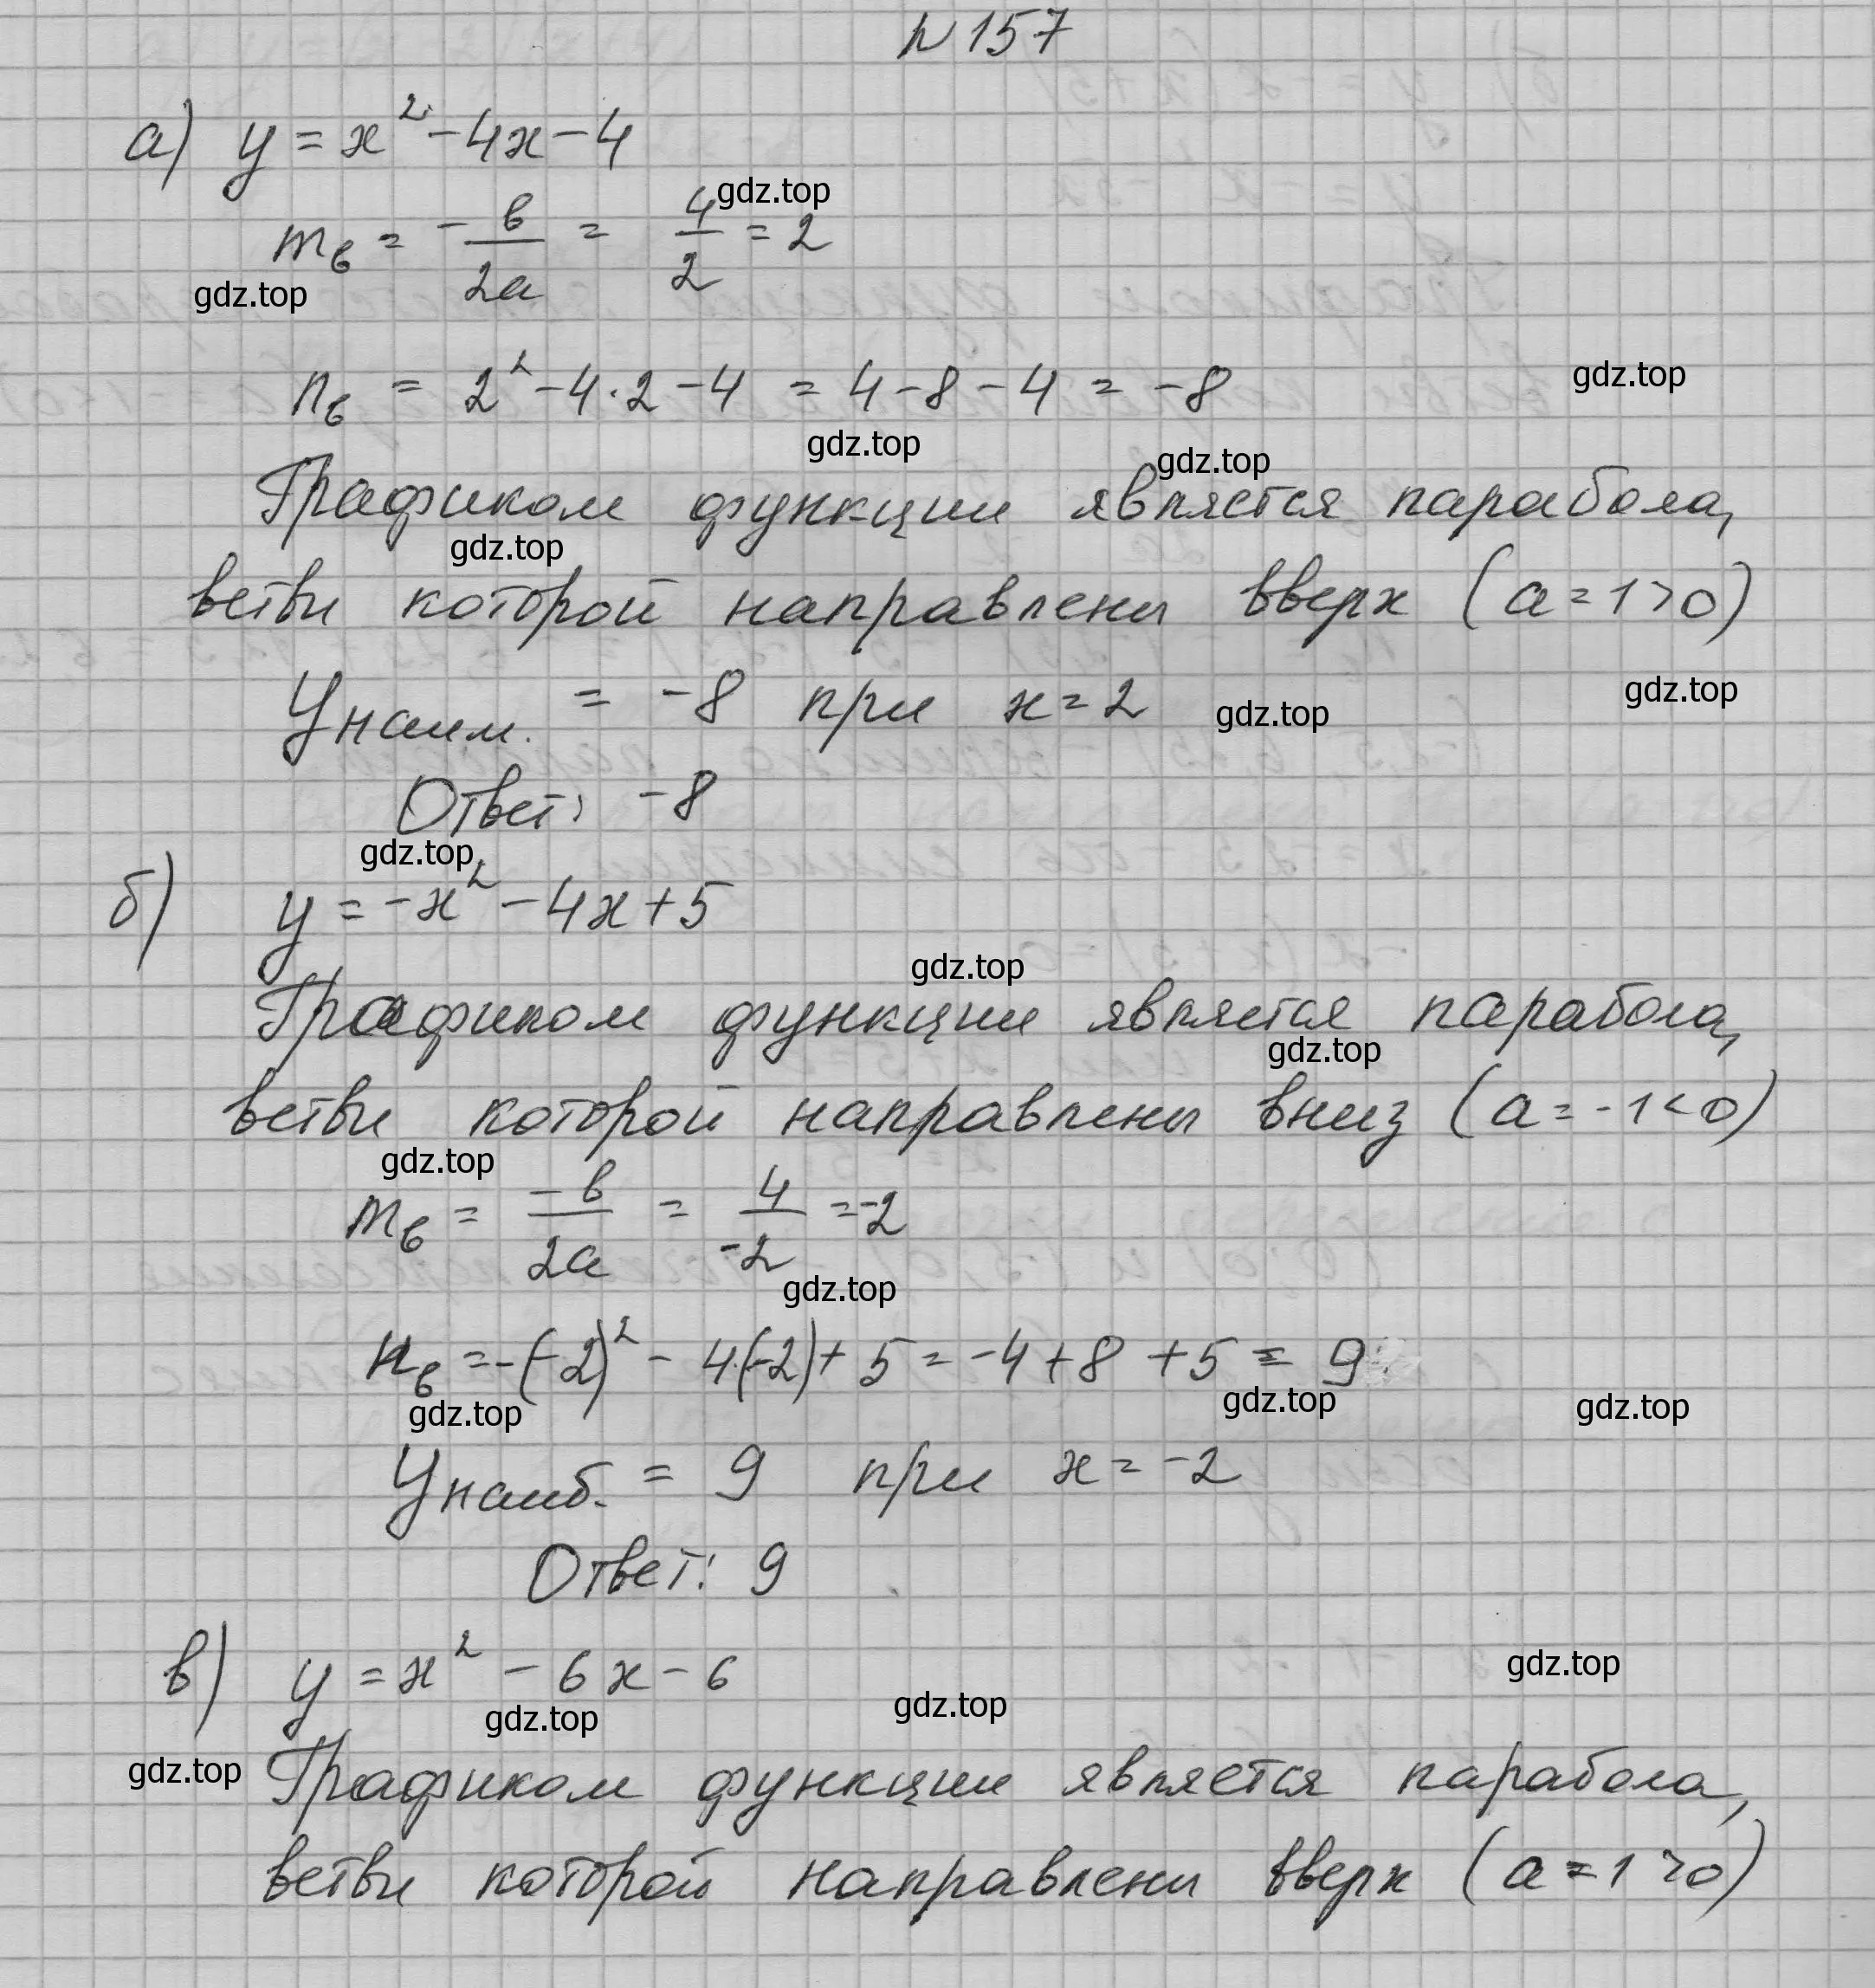 № 157
а) y = x² - 4x - 4
gdz.top
m_в = - в/2а = 4/2 = 2
gdz.top
n_в = 2² - 4·2 - 4 = 4 - 8 - 4 = -8
gdz.top
gdz.top
gdz.top
Графиком функции является парабола,
gdz.top
ветви которой направлены вверх (а = 1 > 0)
У наим. = -8 при x = 2
gdz.top
gdz.top
Ответ: -8
gdz.top
б) y = -x² - 4x + 5
gdz.top
Графиком функции является парабола,
gdz.top
ветви которой направлены вниз (а = -1 < 0)
gdz.top
m_в = -в/2а = 4/-2 = -2
gdz.top
n_в = -(-2)² - 4·(-2) + 5 = -4 + 8 + 5 = 9
gdz.top
gdz.top
gdz.top
У наиб. = 9 при x = -2
Ответ: 9
в) y = x² - 6x - 6
gdz.top
gdz.top
gdz.top
gdz.top
Графиком функции является парабола,
ветви которой направлены вверх (а = 1 > 0)